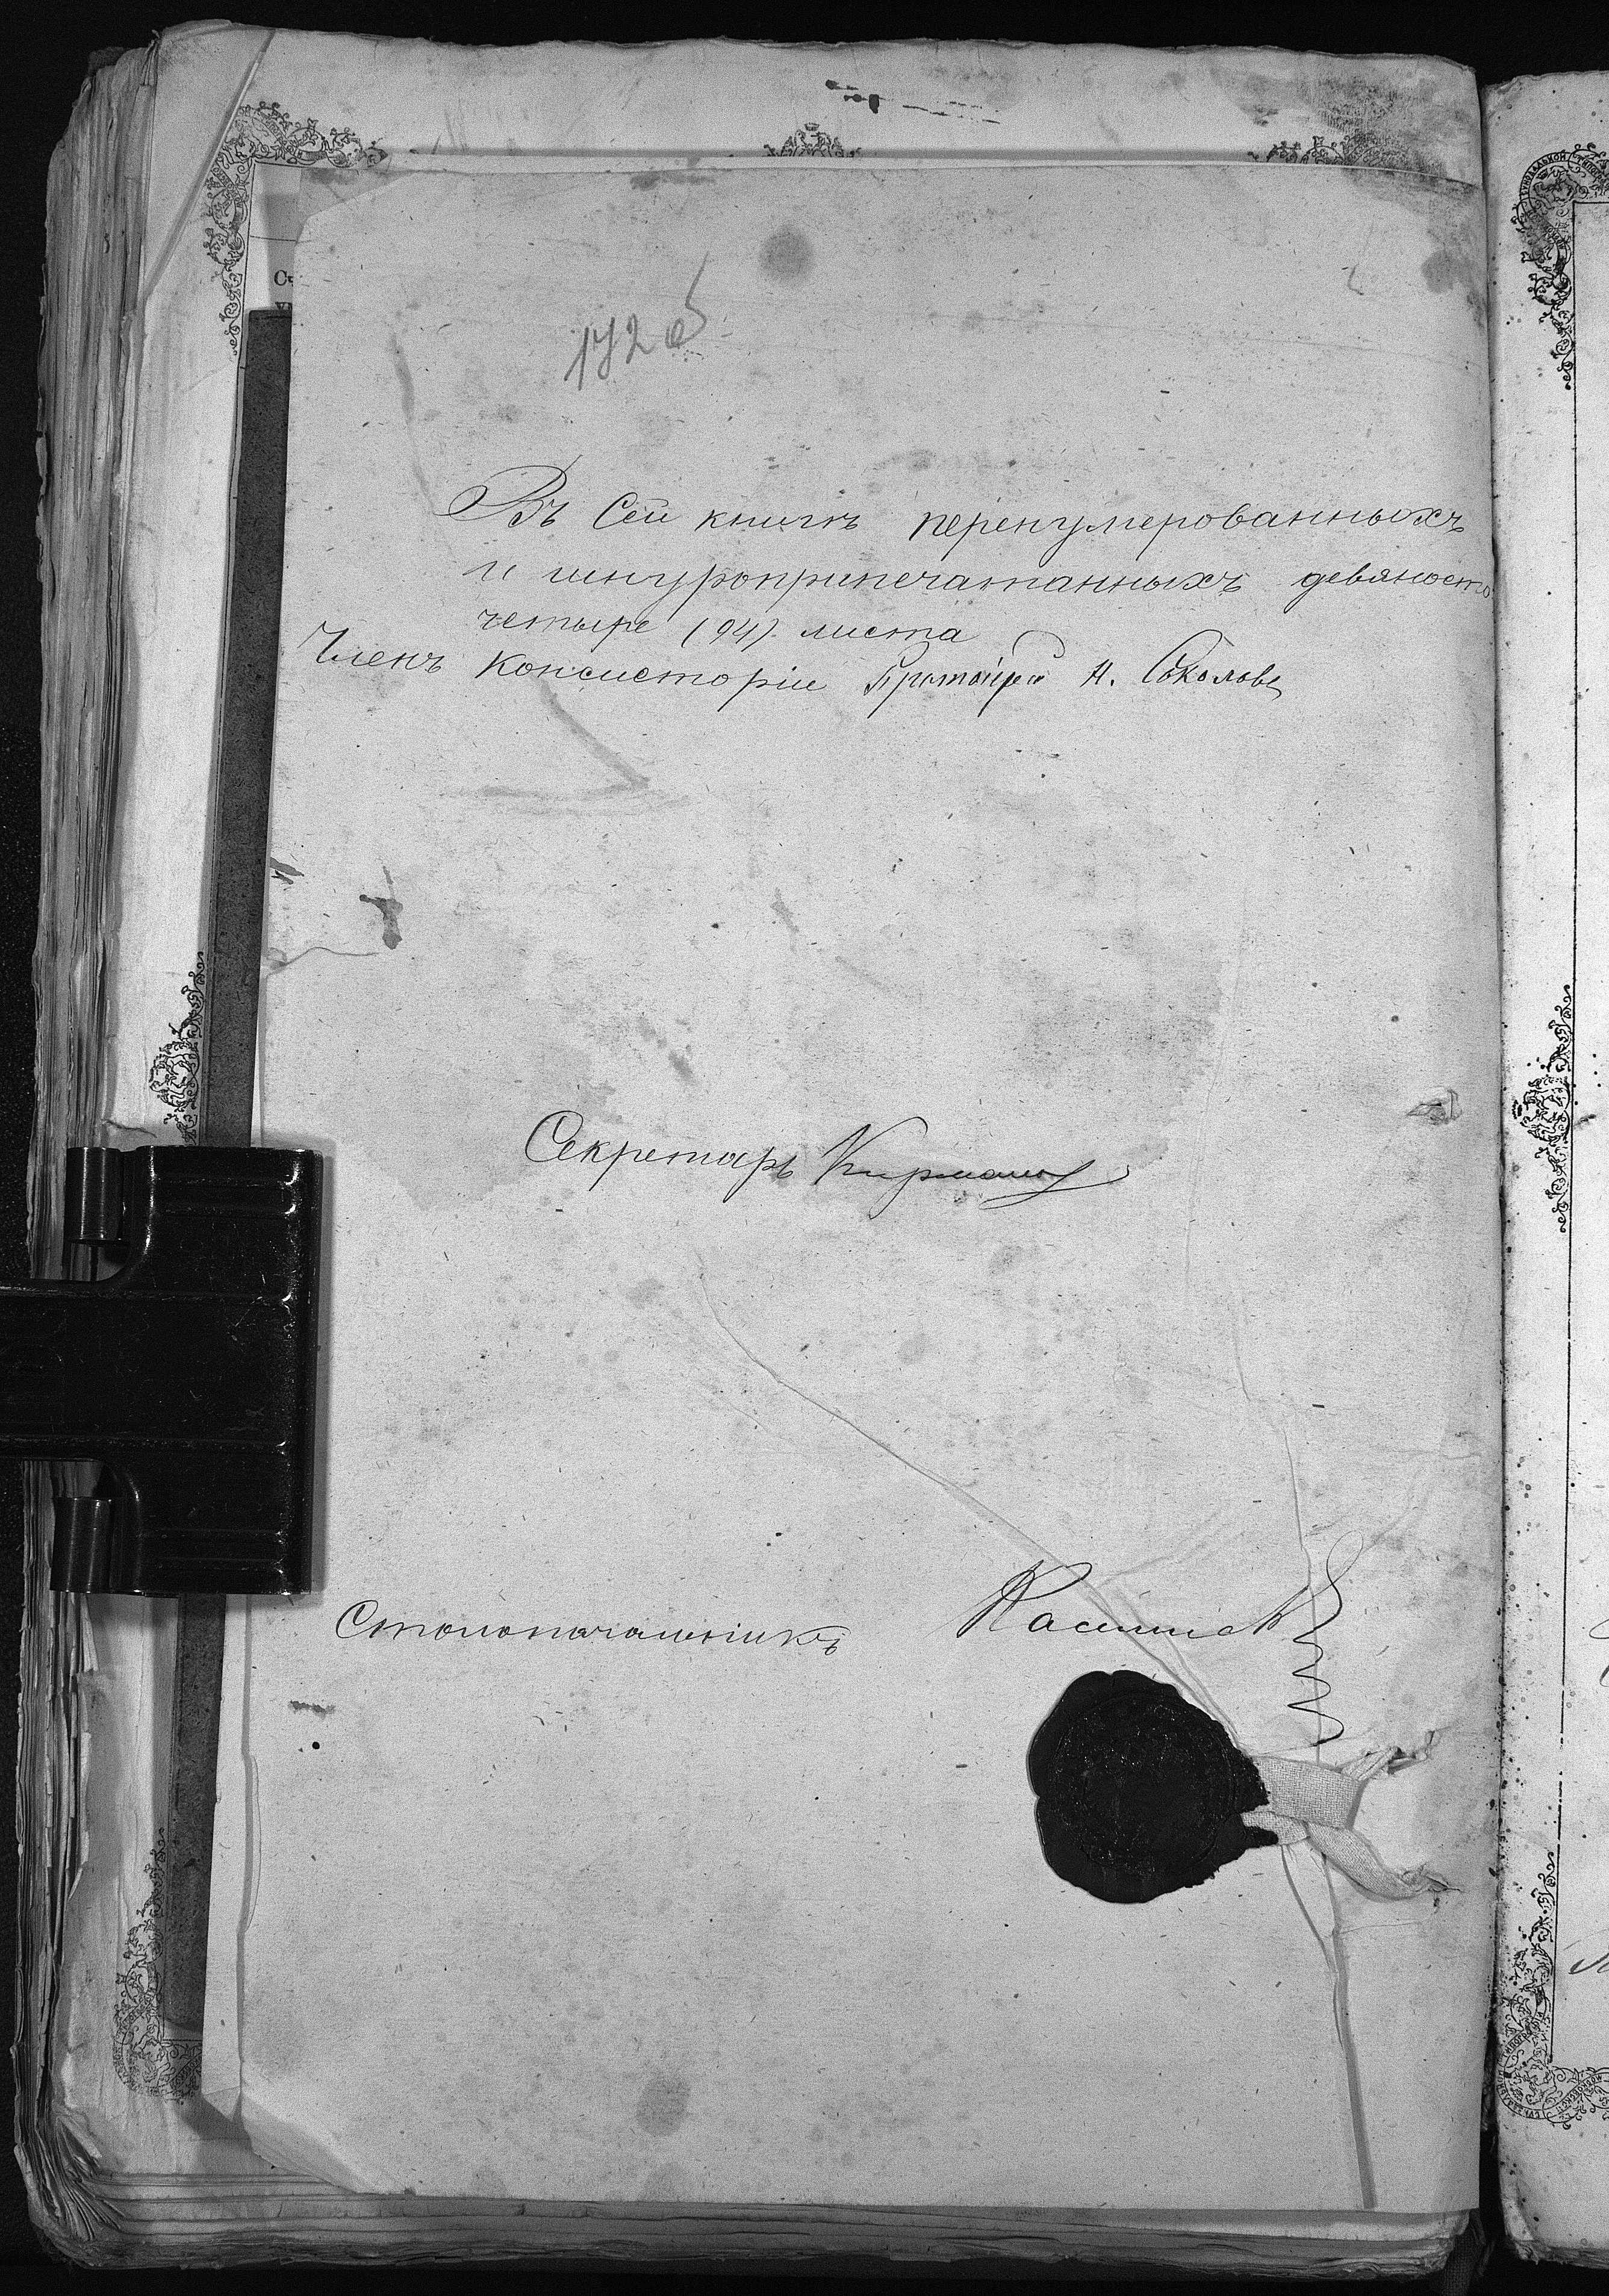 172 об
Въ Сей книгѣ перенумерованныхъ
и шнуроприпечатанныхъ девяносто
четыре (94). листа
Членъ Консисторіи Протоіерей Н. Соколовъ
Секретарь
Столоначальникъ